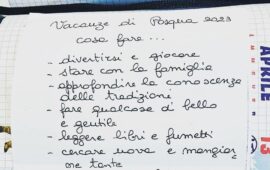 Vacanze di Pasqua 2023
cosa fare ...
- divertirsi e giocare
- stare con la famiglia
- approfondire la conoscenza
delle tradizioni
- fare qualcosa di bello
e gentile
- leggere libri e fumetti
- cercare uova e mangiar
ne tante
APRILE